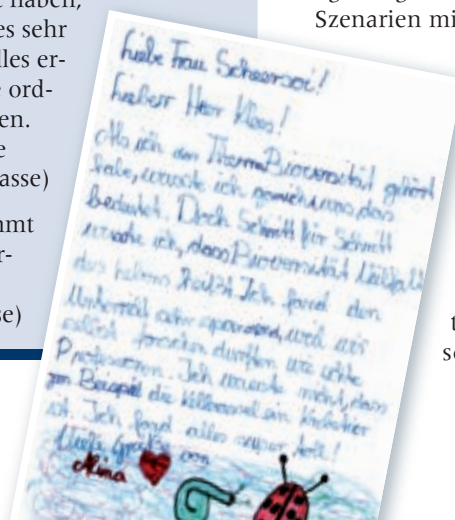 e haben,
es sehr
lles er-
e ord-
en.
e
asse)
mmt
r-
se)
Szenarien mi
t
so
Liebe Frau Scheersoi!
Lieber Herr Klaas!
Als ich den Thema Bioversität gehört
habe, wusste ich gar nicht was das
bedeutet. Doch Schritt für Schritt
wusste ich, dass Bioversität Vielfalt
des Lebens heißt. Ich fand den
Unterricht sehr spannend, weil wir
forschen durften wie echte
Professoren. Ich wusste nicht, dass
zum Beispiel die ein
ist. Ich fand alles super toll!
Liebe Grüße von
Mina